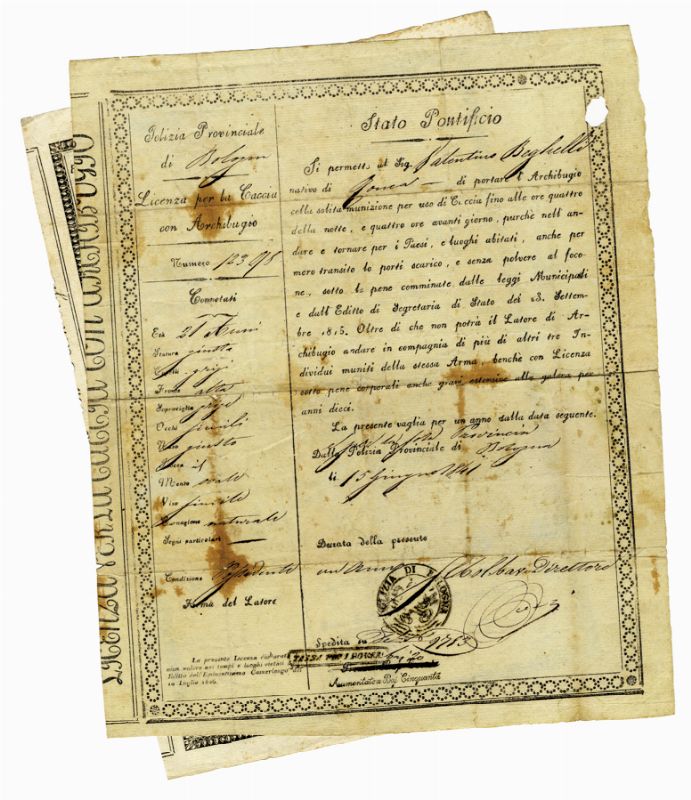 LICENZA PER LA CACCIA CON ARCHIBUGIO
Polizia Provinciale
di Bologna
Licenza per la Caccia
con Archibugio
Numero 123
Connotati
Età
Statura giusta
Capelli grigi
Fronte alta
Sopraciglia grige
Occhi simili
Naso giusto
Bocca
Mento ovale
Viso simile
Carnagione naturale
Segni particolari —
Condizione Possidente
Firma del Latore
La presente Licenza
alcun valore nei tempi e luoghi vietati
Editto dell'Eminentissimo Camerlengo del
10 Luglio 1826.
Stato Pontificio
Si permette al Sig. Valentino Beghelli
nativo di — di portare l'Archibugio
colla solita munizione per uso di Caccia fino alle ore quattro
della notte, e quattro ore avanti giorno, purchè nell'an-
dare e tornare per i Paesi, e luoghi abitati, anche per
mero transito lo porti scarico, e senza polvere al foco-
ne, sotto le pene comminate dalle leggi Municipali
e dall'Editto di Segretaria di Stato dei 23. Settem-
bre 1815. Oltre di che non potrà il Latore di Ar-
chibugio andare in compagnia di più di altri tre In-
dividui muniti della stessa Arma, benchè con Licenza
sotto pene corporali anche gravi estensive alla galera per
anni dieci.
La presente vaglia per un anno dalla data seguente.
per la sola Provincia
Dalla Polizia Provinciale di Bologna
li 15 Giugno 1841
Durata della presente
un Anno Direttore
POLIZIA DI BOLOGNA
Spedita
Aumentato a Baj Cinquanta